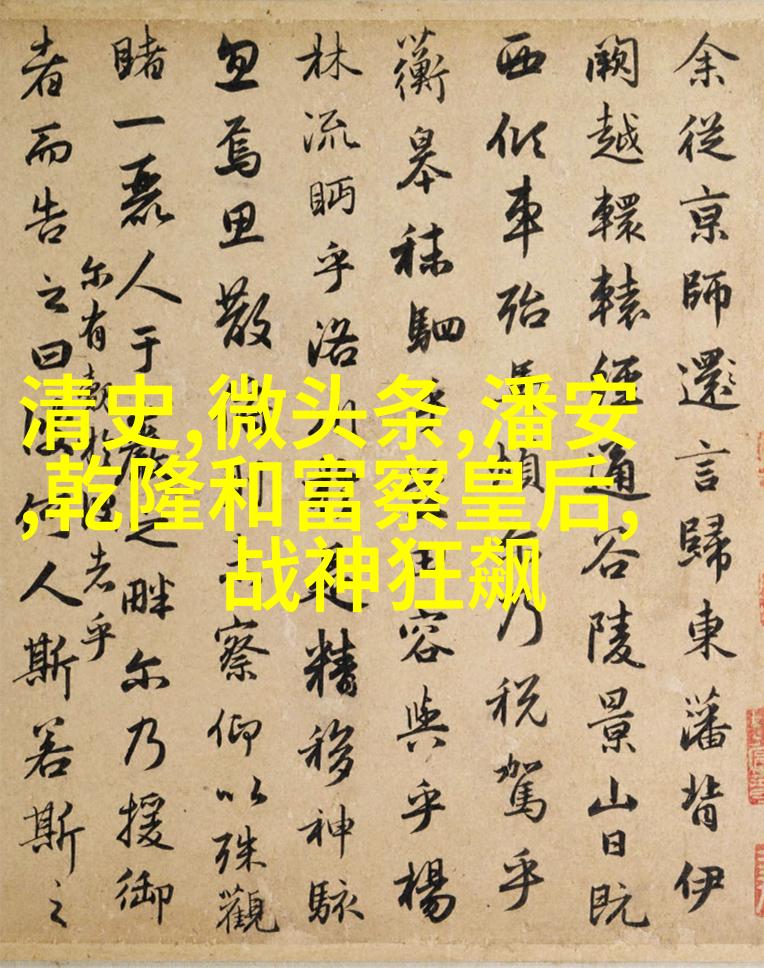 余從京師還言歸東藩背伊
闕越轘轅經通谷陵景山日既
西傾車殆馬煩乃税駕乎
蘅皋秣駟田容與乎楊
林流眄乎洛川是精移神駭
忽焉思散察仰以殊觀
睹一麗人于巖之畔尔乃援御
尔有覿於者乎
者而告之曰何人斯若斯之
清史,微头条,潘安
,乾隆和富察皇后,
战神狂飙